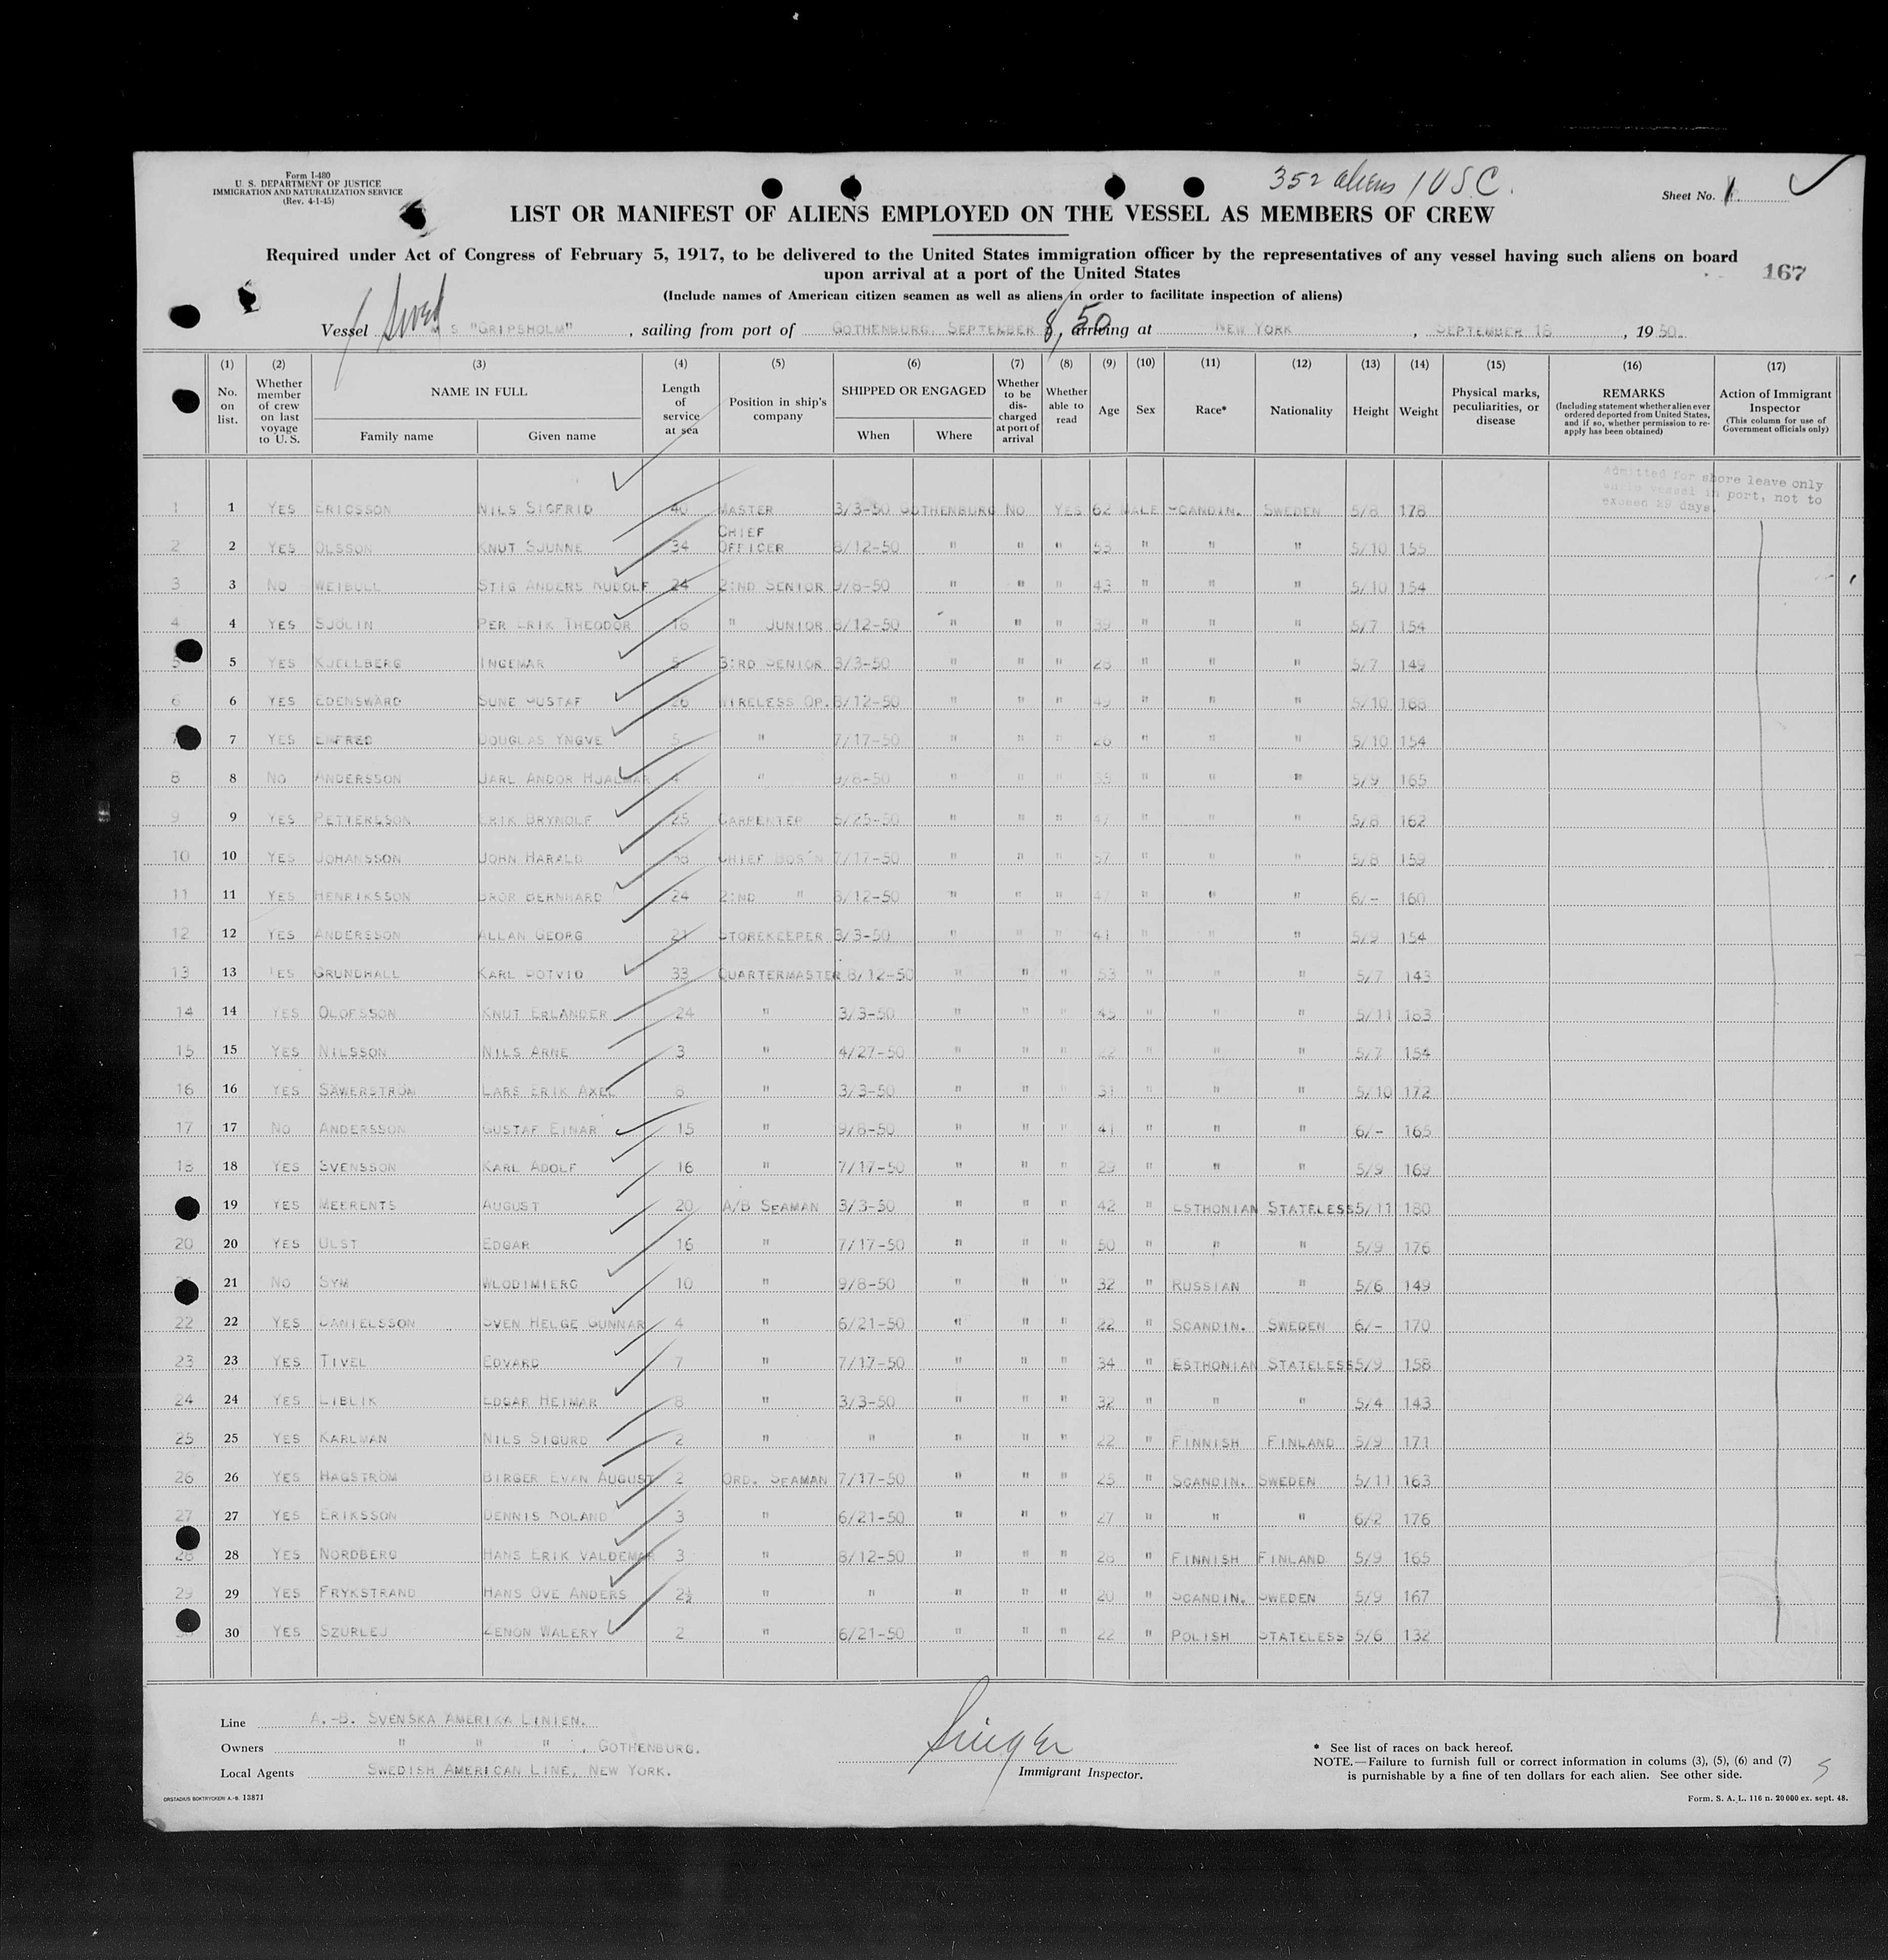 Form I-480
U. S. DEPARTMENT OF JUSTICE
IMMIGRATION AND NATURALIZATION SERVICE
(Rev. 4-1-45)
352 aliens 1 USC.
Sheet No. 1.
LIST OR MANIFEST OF ALIENS EMPLOYED ON THE VESSEL AS MEMBERS OF CREW
Required under Act of Congress of February 5, 1917, to be delivered to the United States immigration officer by the representatives of any vessel having such aliens on board
upon arrival at a port of the United States
167
(Include names of American citizen seamen as well as aliens in order to facilitate inspection of aliens)
Vessel M S "GRIPSHOLM", sailing from port of GOTHENBURG, SEPTEMBER 8, 50 arriving at NEW YORK, SEPTEMBER 18, 1950.
(1) (2) (3) (4) (5) (6) (7) (8) (9) (10) (11) (12) (13) (14) (15) (16) (17)
No. on list. Whether member of crew on last voyage to U. S. NAME IN FULL Family name Given name Length of service at sea Position in ship's company SHIPPED OR ENGAGED When Where Whether to be discharged at port of arrival Whether able to read Age Sex Race* Nationality Height Weight Physical marks, peculiarities, or disease REMARKS (Including statement whether alien ever ordered deported from United States, and if so, whether permission to re-apply has been obtained) Action of Immigrant Inspector (This column for use of Government officials only)
Admitted for shore leave only
while vessel in port, not to
exceed 29 days.
1 1 YES ERICSSON NILS SIGFRID 40 MASTER 3/3-50 GOTHENBURG NO YES 62 MALE SCANDIN. SWEDEN 5/8 178
2 2 YES OLSSON KNUT SJUNNE 34 CHIEF OFFICER 8/12-50 " " " 53 " " " 5/10 155
3 3 NO WEIBULL STIG ANDERS RUDOLF 24 2:ND SENIOR 9/8-50 " " " 43 " " " 5/10 154
4 4 YES SJÖLIN PER ERIK THEODOR 18 " JUNIOR 8/12-50 " " " 39 " " " 5/7 154
5 5 YES KJELLBERG INGEMAR 5 3:RD SENIOR 3/3-50 " " " 28 " " " 5/7 149
6 6 YES EDENSWÄRD SUNE GUSTAF 26 WIRELESS OP. 8/12-50 " " " 49 " " " 5/10 168
7 7 YES DOUGLAS YNGVE 5 " 7/17-50 " " " 26 " " " 5/10 154
8 8 NO ANDERSSON JARL ANDOR HJALMAR 4 " 9/8-50 " " " 35 " " " 5/9 165
9 9 YES PETTERSSON ERIK BRYNOLF 25 CARPENTER 5/25-50 " " " 47 " " " 5/8 162
10 10 YES JOHANSSON JOHN HARALD 38 CHIEF BOS'N 7/17-50 " " " 57 " " " 5/8 159
11 11 YES HENRIKSSON BROR BERNHARD 24 2:ND " 8/12-50 " " " 47 " " " 6/- 160
12 12 YES ANDERSSON ALLAN GEORG 21 STOREKEEPER 3/3-50 " " " 41 " " " 5/9 154
13 13 YES GRUNDHALL KARL GOTVID 33 QUARTERMASTER 8/12-50 " " " 53 " " " 5/7 143
14 14 YES OLOFSSON KNUT ERLANDER 24 " 3/3-50 " " " 45 " " " 5/11 183
15 15 YES NILSSON NILS ARNE 3 " 4/27-50 " " " 22 " " " 5/7 154
16 16 YES SÄWERSTRÖM LARS ERIK AXEL 8 " 3/3-50 " " " 31 " " " 5/10 172
17 17 NO ANDERSSON GUSTAF EINAR 15 " 9/8-50 " " " 41 " " " 6/- 165
18 18 YES SVENSSON KARL ADOLF 16 " 7/17-50 " " " 29 " " " 5/9 169
19 YES MEERENTS AUGUST 20 A/B SEAMAN 3/3-50 " " " 42 " ESTHONIAN STATELESS 5/11 180
20 20 YES ULST EDGAR 16 " 7/17-50 " " " 50 " " " 5/9 176
21 NO SYM WLODIMIERG 10 " 9/8-50 " " " 32 " RUSSIAN " 5/6 149
22 22 YES DANIELSSON SVEN HELGE GUNNAR 4 " 6/21-50 " " " 22 " SCANDIN. SWEDEN 6/- 170
23 23 YES TIVEL EDVARD 7 " 7/17-50 " " " 34 " ESTHONIAN STATELESS 5/9 158
24 24 YES LIBLIK EDGAR HEIMAR 8 " 3/3-50 " " " 32 " " " 5/4 143
25 25 YES KARLMAN NILS SIGURD 2 " " " " " 22 " FINNISH FINLAND 5/9 171
26 26 YES HAGSTRÖM BIRGER EVAN AUGUST 2 ORD. SEAMAN 7/17-50 " " " 25 " SCANDIN. SWEDEN 5/11 163
27 27 YES ERIKSSON DENNIS ROLAND 3 " 6/21-50 " " " 27 " " " 6/2 176
28 28 YES NORDBERG HANS ERIK VALDEMAR 3 " 8/12-50 " " " 28 " FINNISH FINLAND 5/9 165
29 29 YES FRYKSTRAND HANS OVE ANDERS 2½ " " " " " 20 " SCANDIN. SWEDEN 5/9 167
30 30 YES SZURLEJ ZENON WALERY 2 " 6/21-50 " " " 22 " POLISH STATELESS 5/6 132
Line A.-B. SVENSKA AMERIKA LINIEN.
Owners " " " , GOTHENBURG.
Local Agents SWEDISH AMERICAN LINE, NEW YORK.
Immigrant Inspector.
* See list of races on back hereof.
NOTE.—Failure to furnish full or correct information in colums (3), (5), (6) and (7)
is punishable by a fine of ten dollars for each alien. See other side.
ORSTADIUS BOKTRYCKERI A.-B. 13871
Form. S. A. L. 116 n. 20000 ex. sept. 48.